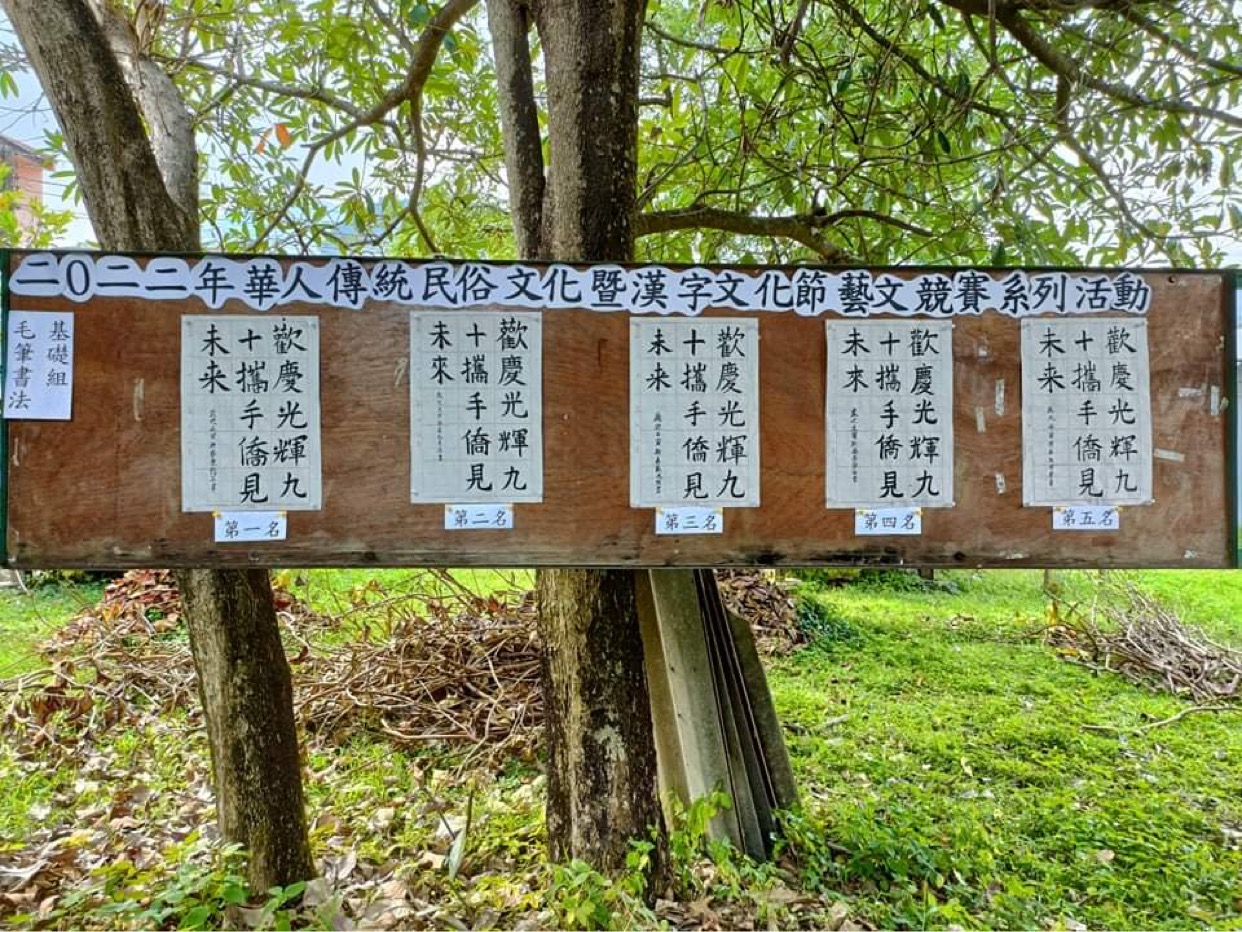 二〇二二年華人傳統民俗文化暨漢字文化節藝文競賽系列活動
基礎組
毛筆書法
歡慶光輝九
十攜手僑見
未來
第一名
歡慶光輝九
十攜手僑見
未來
第二名
歡慶光輝九
十攜手僑見
未來
第三名
歡慶光輝九
十攜手僑見
未來
第四名
歡慶光輝九
十攜手僑見
未來
第五名